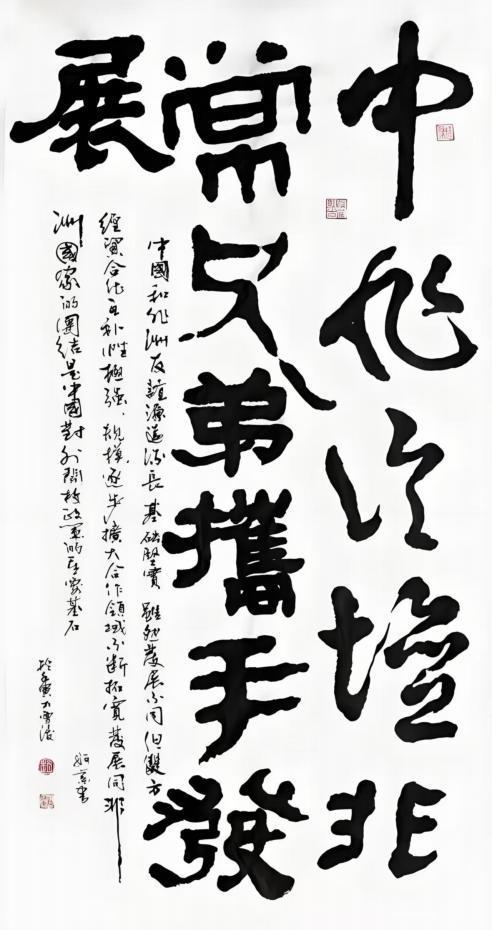 中非论壇非
常兄弟攜手發
展
中國和非洲友誼源遠流長基礎堅實雖然發展不同但雙方
經貿合作互补性極強、規模逐步擴大合作領域不斷拓寬發展同非
洲國家的團結是中國對外開放政策的重要基石
於壬寅
書